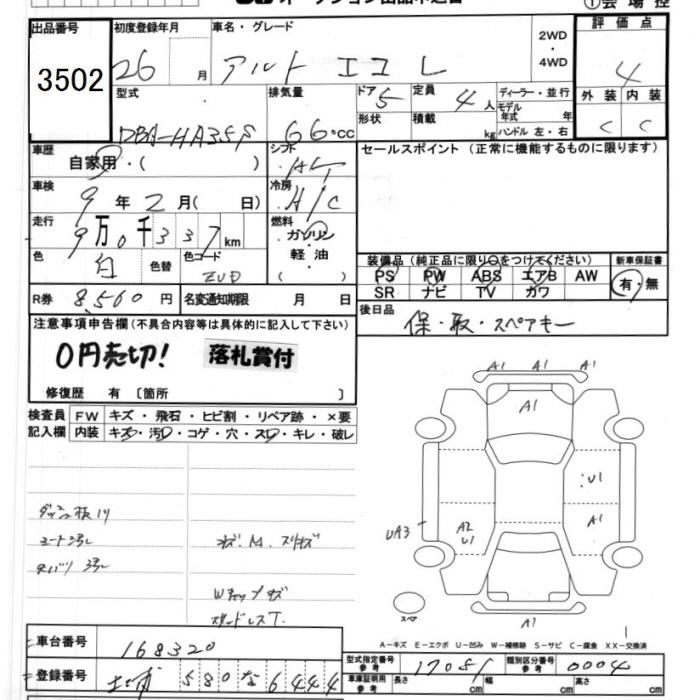 出品番号 初度登録年月 車名・グレード 2WD・4WD 評価点
3502 26 月 アルト エコ L 4
型式 排気量 ドア 5 定員 4人 ディーラー・並行 外装 内装
DBA-HA35S 66・cc 形状 積載 kg モデル年式 年 ハンドル 左・右 C C
車歴 シフト セールスポイント (正常に機能するものに限ります)
自家用・( ) AT
車検 9年 2月( 日) 冷房 A/C
走行 9万0千337km 燃料 ガソリン・軽油 ( )
色 白 色替 色コード ZUD
装備品(純正品に限り○をつけてください) 新車保証書
PS PW ABS エアB AW 有・無
SR ナビ TV カワ
R券 8,560円 名変通知期限 月 日
後日品 保・取・スペアキー
注意事項申告欄(不具合内容等は具体的に記入して下さい)
0円売切! 落札賞付
修復歴 有 〔箇所 〕
検査員 FW キズ・飛石・ヒビ割・リペア跡・×要
記入欄 内装 キズ・汚・コゲ・穴・スレ・キレ・破レ
A1 A1 A1
A1
U1
A1
A2
U1
UA3
スペア
A1
Wチップキズ
スタッドレスT.
A-キズ E-エクボ U-凹み W-補修跡 S-サビ C-腐食 XX-交換済
車台番号 168320
型式指定番号 参考 17081 類別区分番号 参考 0004
登録番号 580 6444
車庫証明用 参考 長さ cm 幅 cm 高さ cm